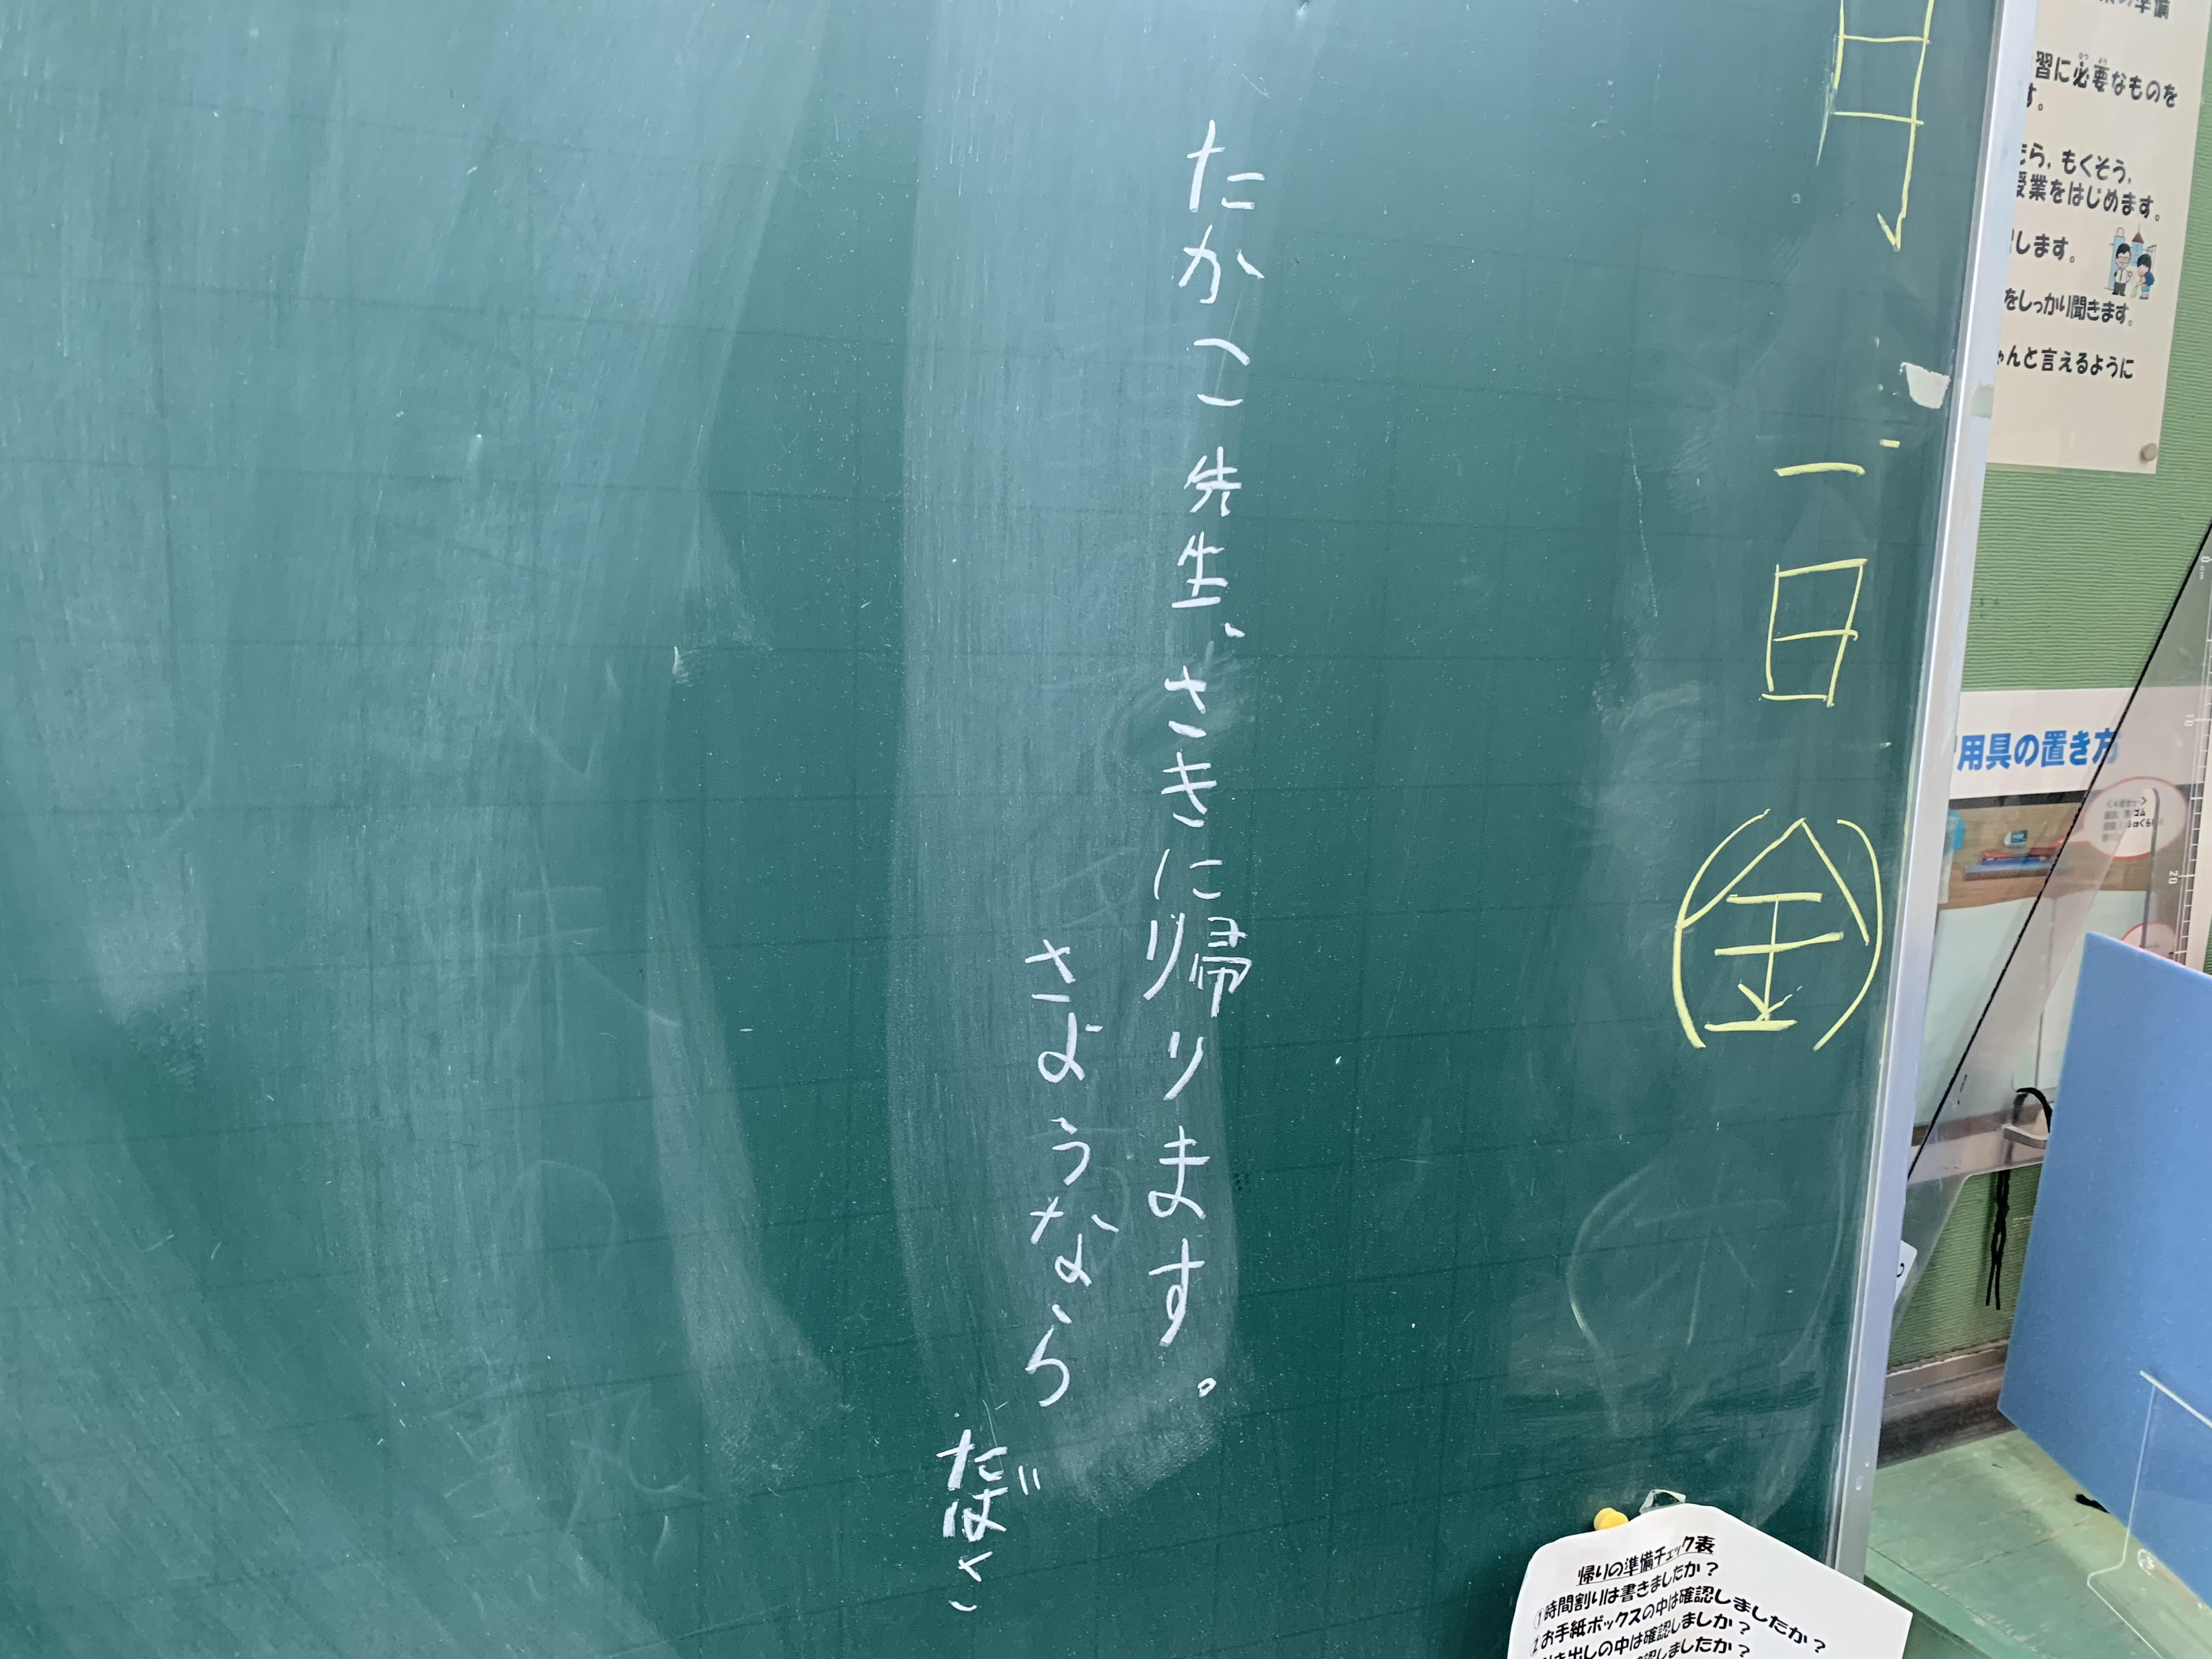 月一日(金)
たかこ先生、さきに帰ります。
さようなら
の準備
習に必要なものを
す。
ら、もくそう、
授業をはじめます。
します。
をしっかり聞きます。
ゃんと言えるように
用具の置き方
帰りの準備チェック表
①時間割りは書きましたか？
2.お手紙ボックスの中は確認しましたか？
き出しの中は確認しましか？
認しましたか？